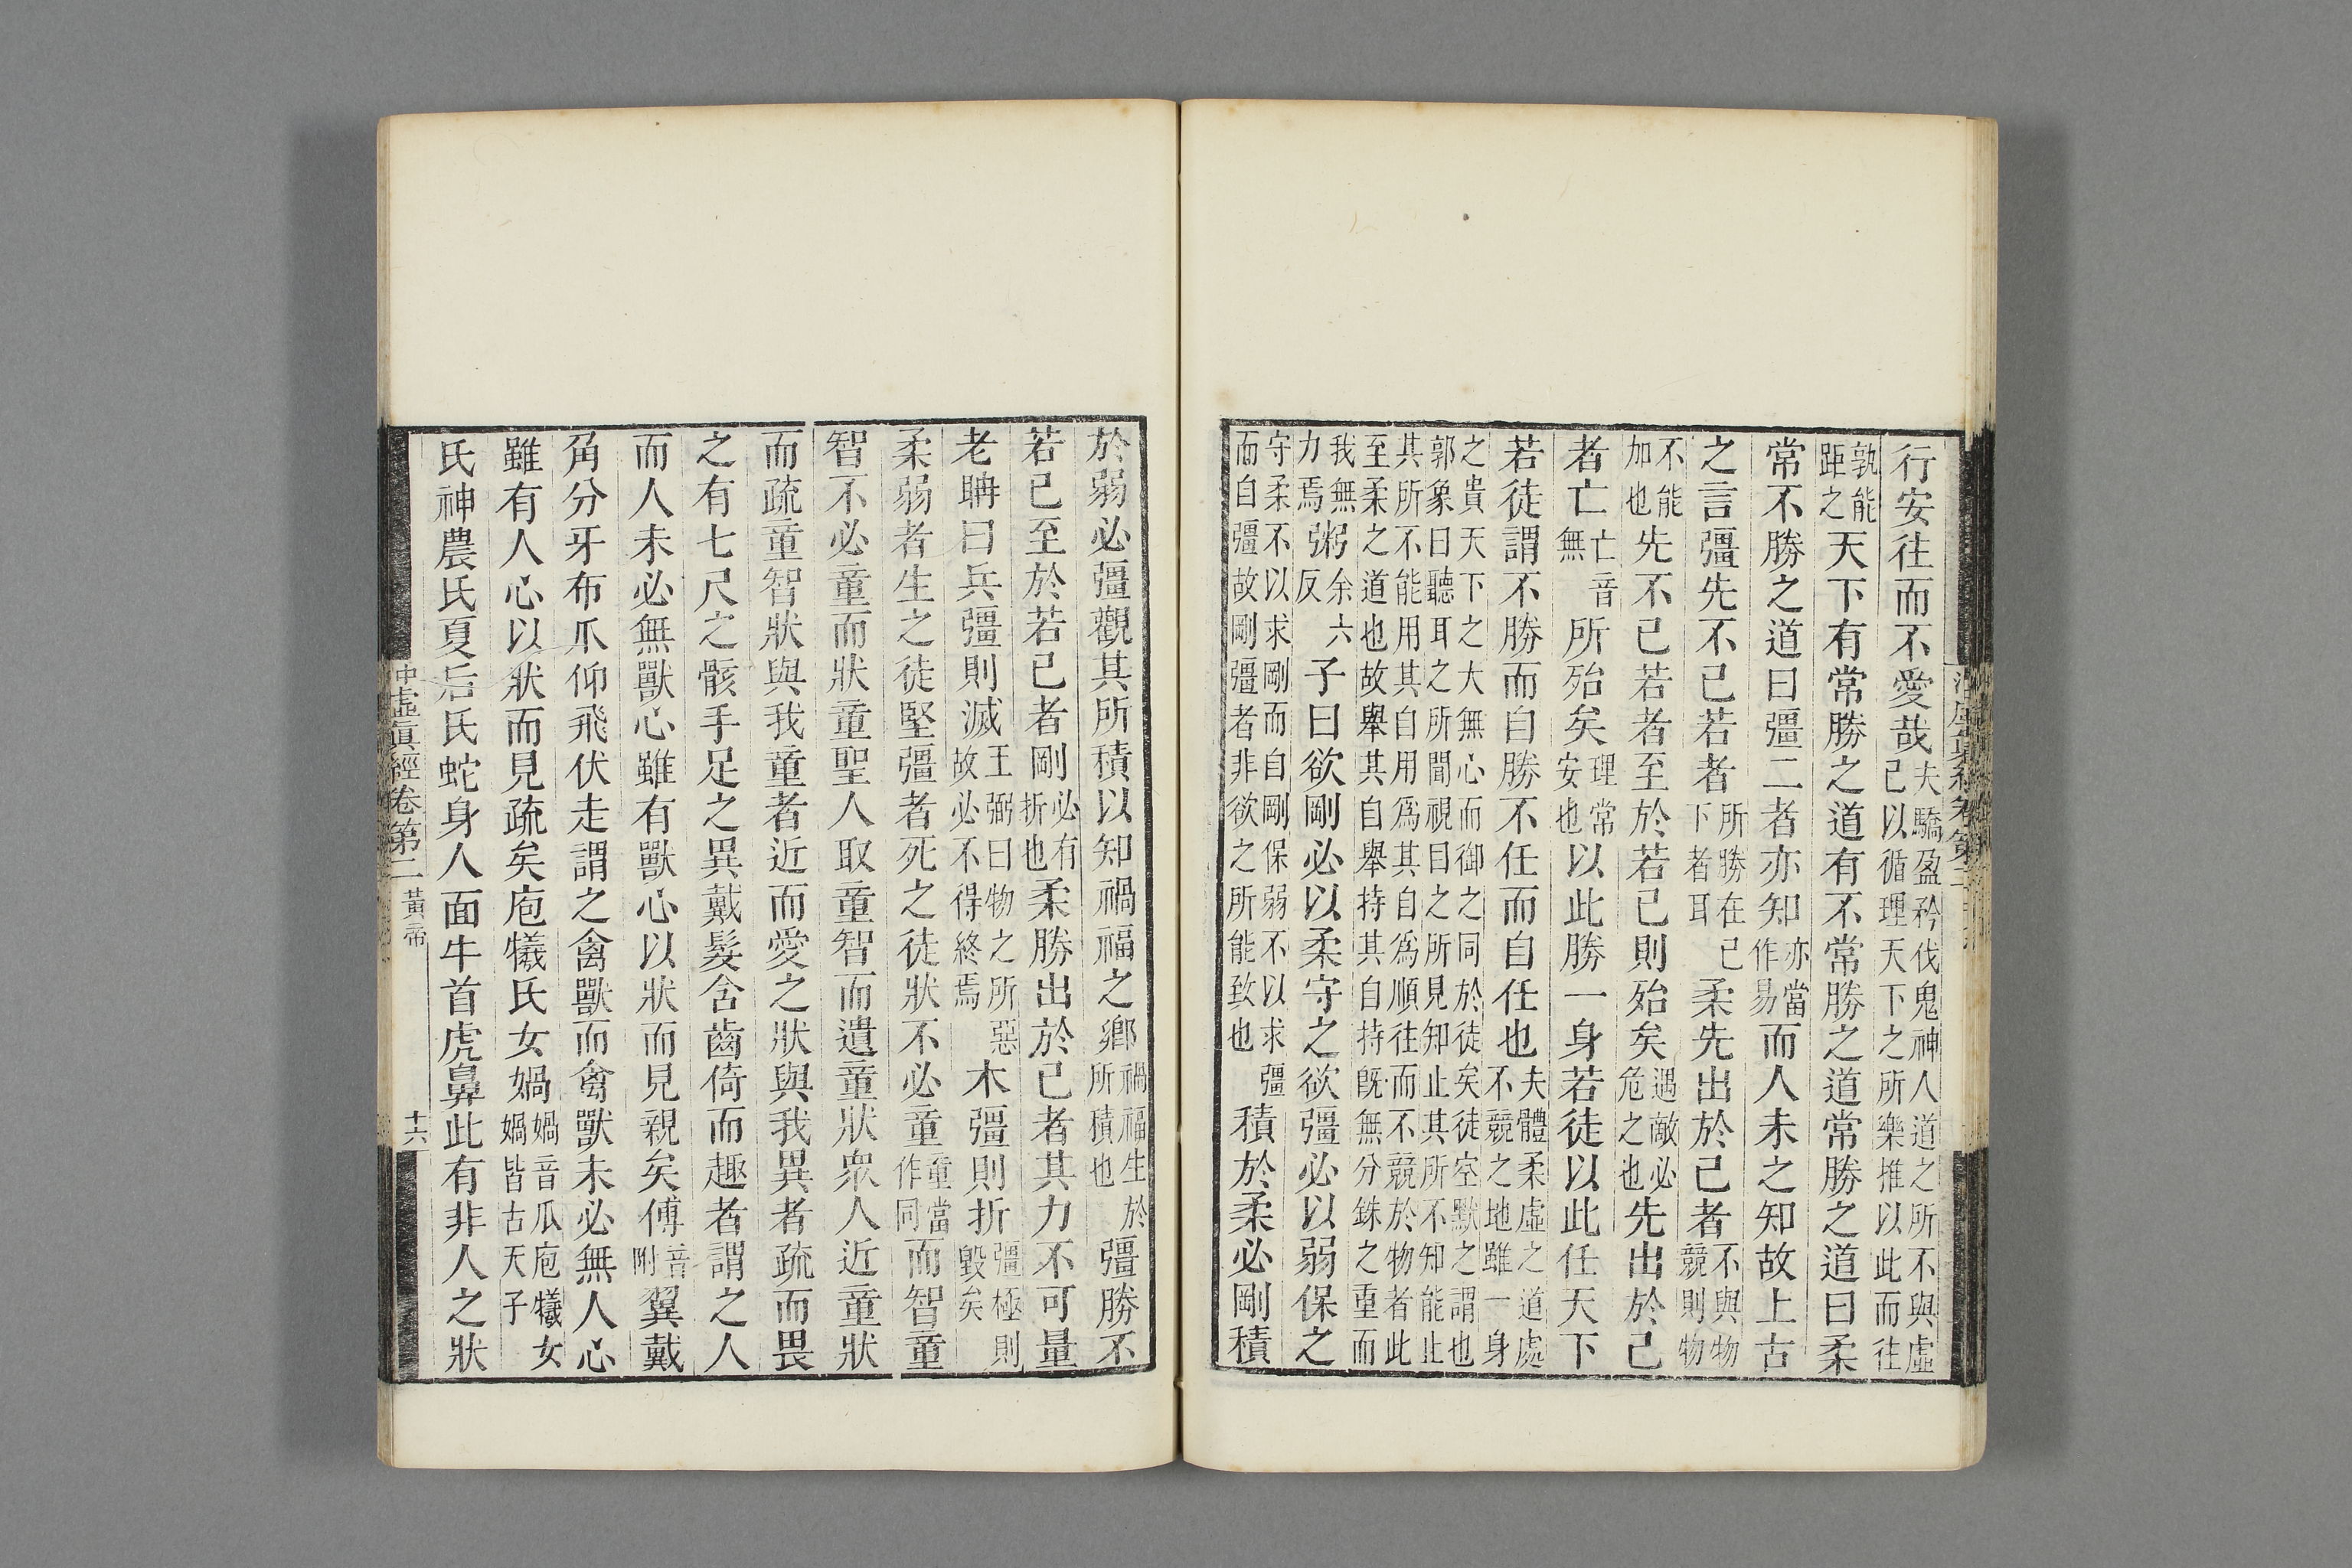 行安往而不愛哉夫驕盈矜伐鬼神人道之所不與虛己以循理天下之所樂推以此而往
孰能距之天下有常勝之道有不常勝之道常勝之道曰柔
常不勝之道曰彊二者亦知亦當作易而人未之知故上古
之言彊先不已若者所勝在己下者耳柔先出於己者不與物競則物
不能加也先不已若者至於若已則殆矣遇敵必危之也先出於己
者亡亡音無所殆矣理常安也以此勝一身若徒以此任天下
若徒謂不勝而自勝不任而自任也夫體柔虛之道處不競之地雖一身
之貴天下之大無心而御之同於徒矣徒空默之謂也郭象曰聽耳之所聞視目之所見知止其所不知能止
其所不能用其自用爲其自爲順往而不競於物者此至柔之道也故舉其自舉持其自持旣無分銖之重而
我無力焉粥余六反子曰欲剛必以柔守之欲彊必以弱保之
守柔不以求剛而自剛保弱不以求彊而自彊故剛彊者非欲之所能致也積於柔必剛積
於弱必彊觀其所積以知禍福之鄉禍福生於所積也彊勝不
若已至於若已者剛必有折也柔勝出於已者其力不可量
老聃曰兵彊則滅王弼曰物之所惡故必不得終焉木彊則折彊極則毀矣
柔弱者生之徒堅彊者死之徒狀不必童童當作同而智童
智不必童而狀童聖人取童智而遺童狀衆人近童狀
而疏童智狀與我童者近而愛之狀與我異者疏而畏
之有七尺之骸手足之異戴髮含齒倚而趣者謂之人
而人未必無獸心雖有獸心以狀而見親矣傅音附翼戴
角分牙布爪仰飛伏走謂之禽獸而禽獸未必無人心
雖有人心以狀而見疏矣庖犧氏女媧媧音瓜庖犧女媧皆古天子
氏神農氏夏后氏蛇身人面牛首虎鼻此有非人之狀
中虛眞經卷第二 黃帝 十六